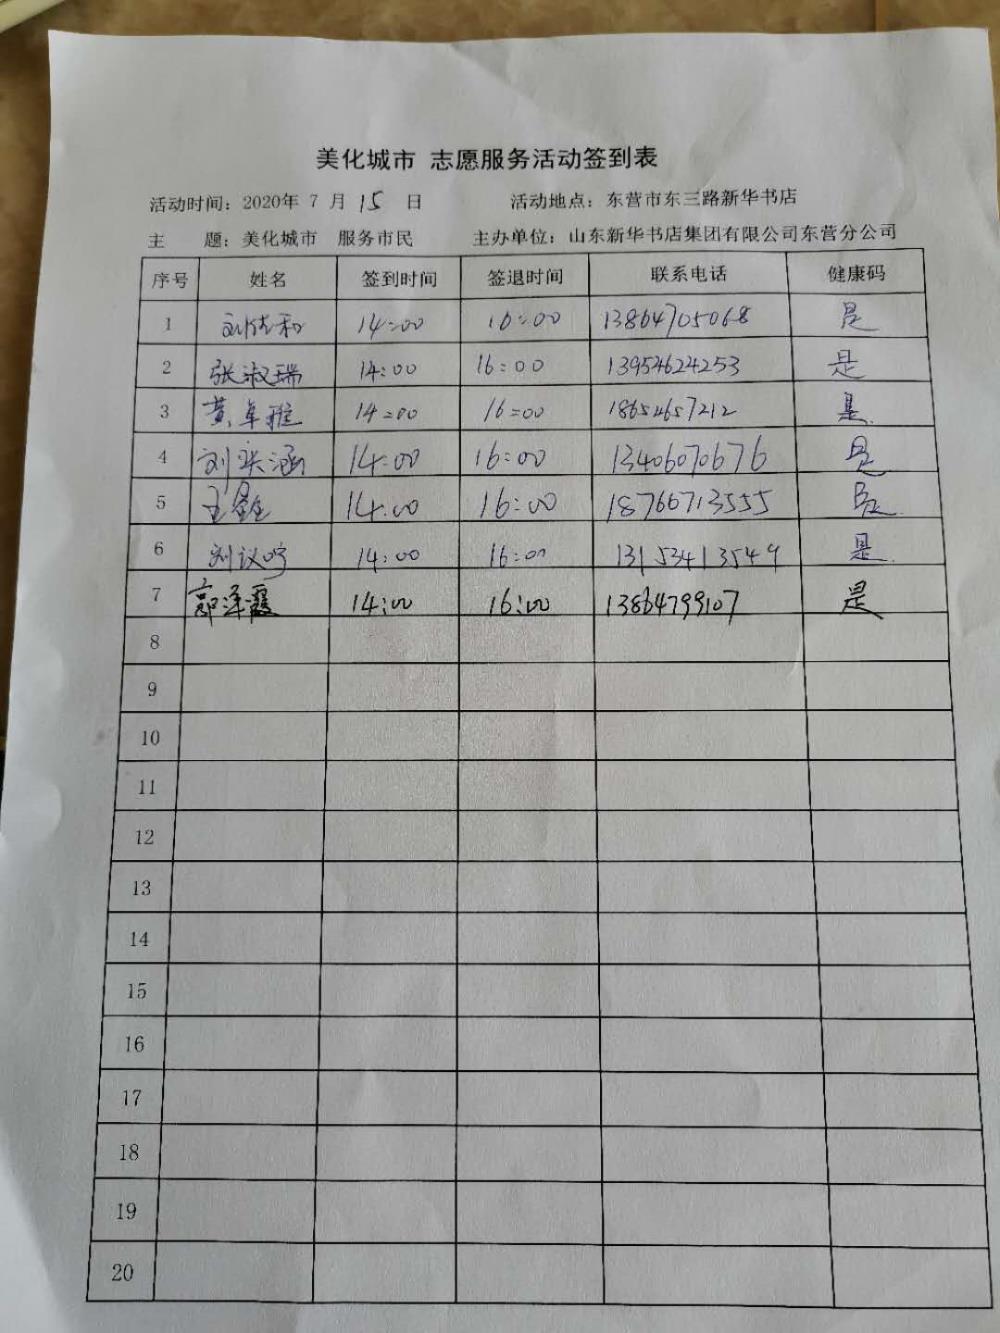 美化城市 志愿服务活动签到表
活动时间：2020年 7 月 15 日 活动地点：东营市东三路新华书店
主 题：美化城市 服务市民 主办单位：山东新华书店集团有限公司东营分公司
序号 姓名 签到时间 签退时间 联系电话 健康码
1 14:00 16:00 13864705068 是
2 张淑瑞 14:00 16:00 13954624253 是
3 黄卓雅 14:00 16:00 18654657212 是
4 刘 涵 14:00 16:00 13406070676 是
5 王鑫 14:00 16:00 18766713555 是
6 刘议 14:00 16:00 13153413549 是
7 郭泽霞 14:00 16:00 13864799107 是
8
9
10
11
12
13
14
15
16
17
18
19
20